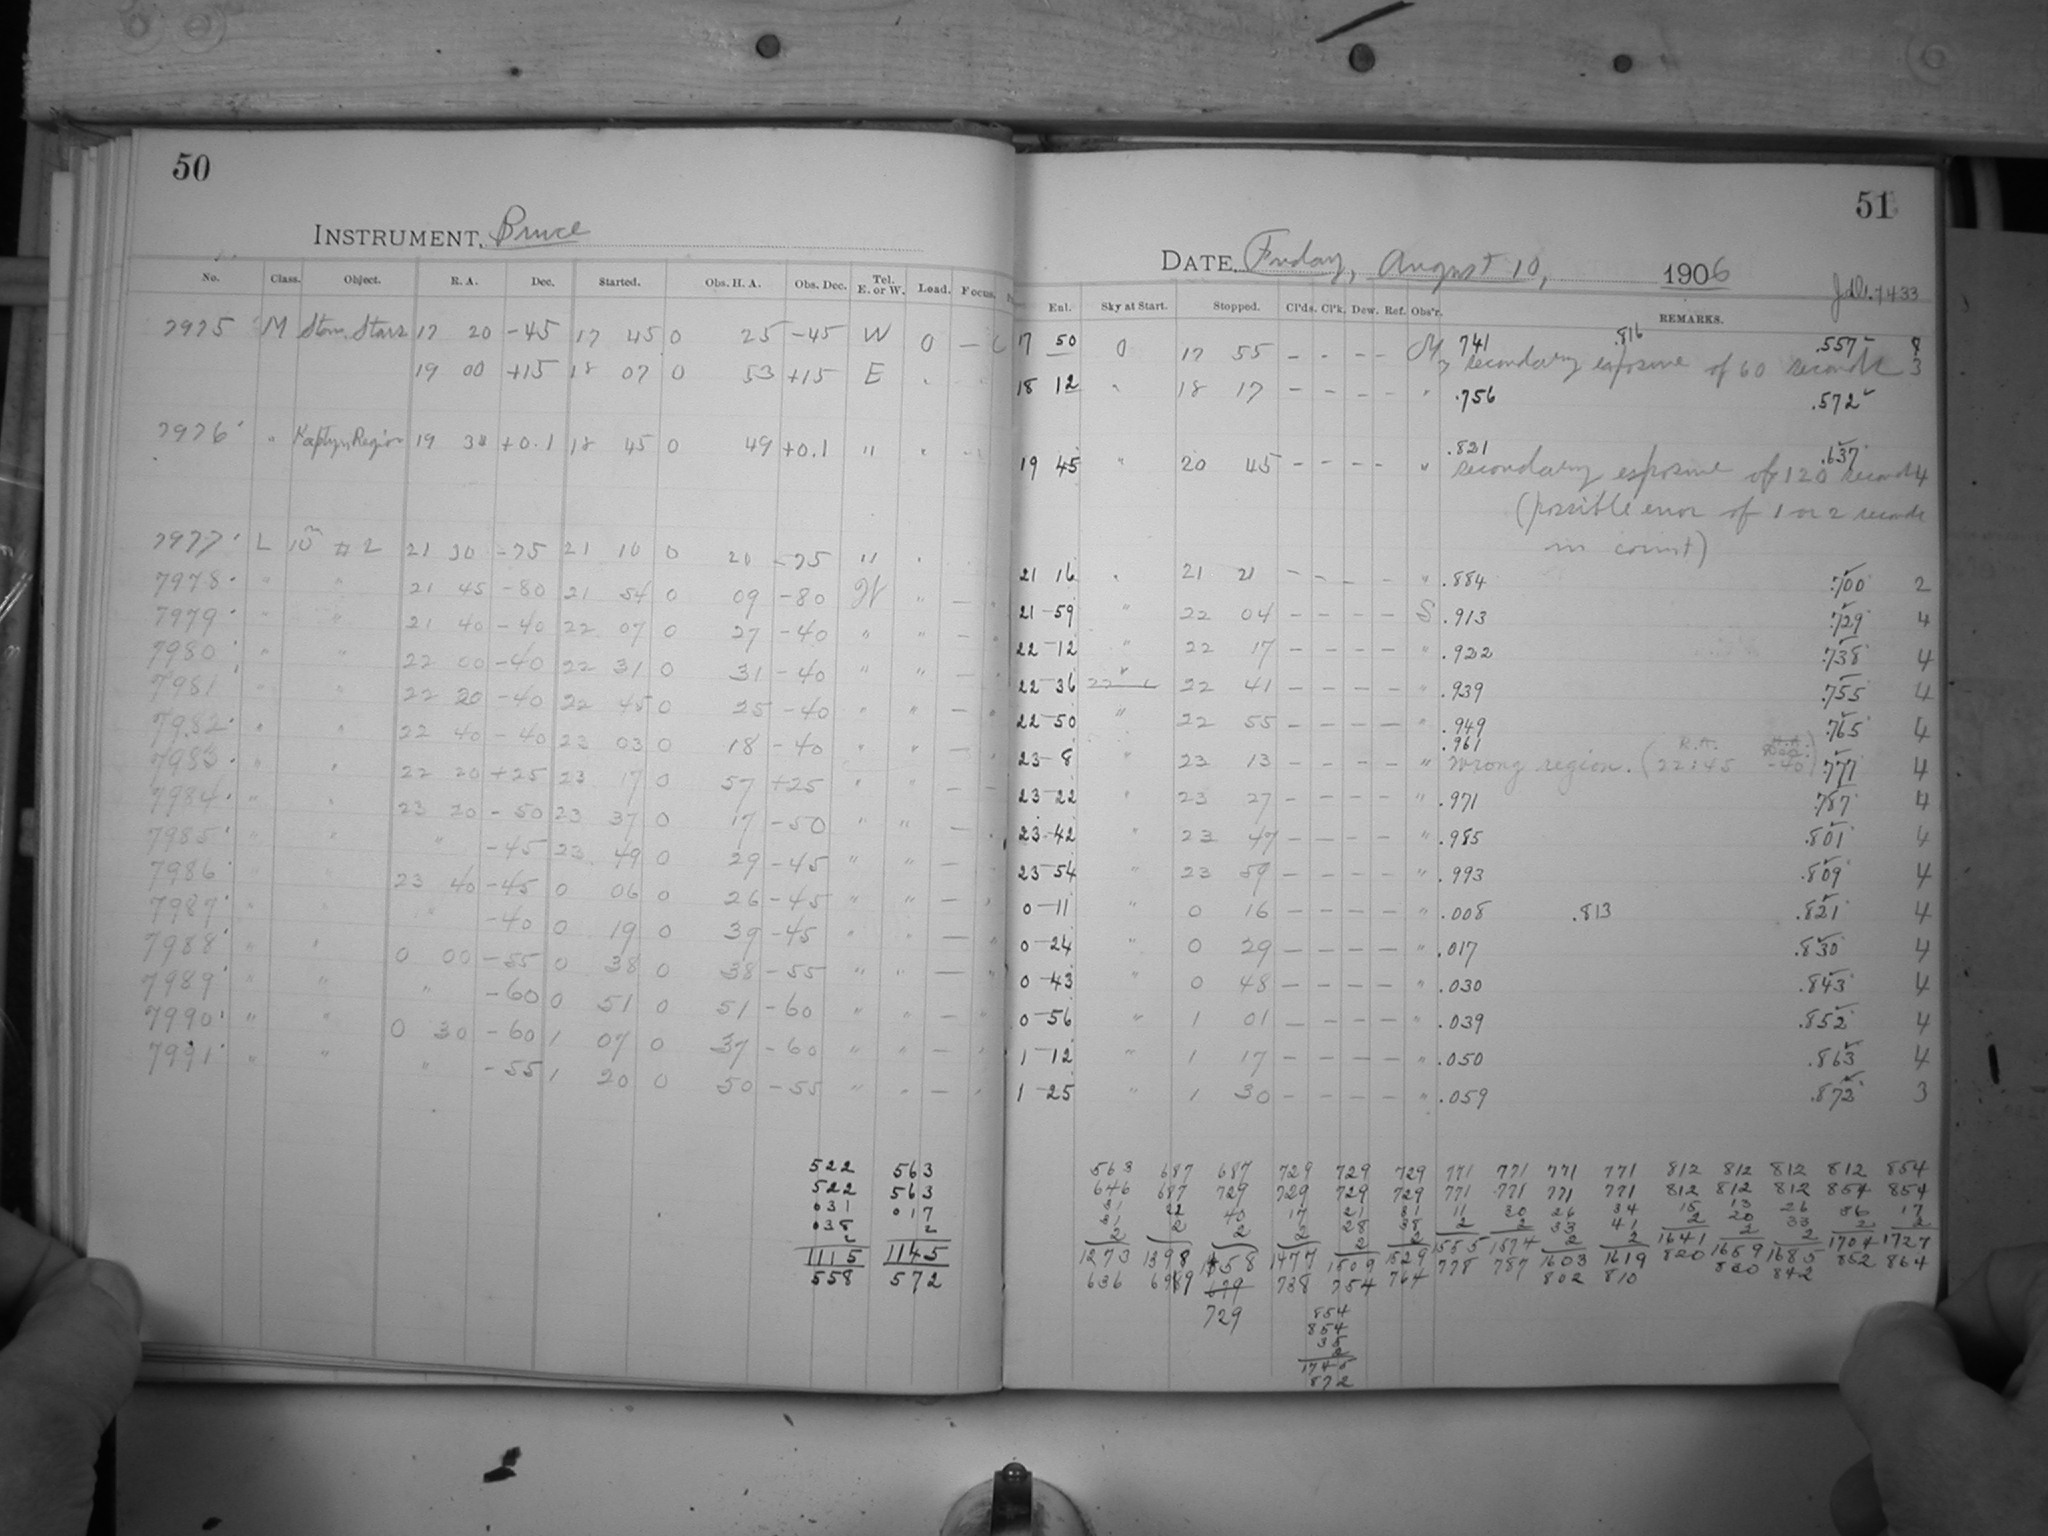 50
INSTRUMENT, Bruce
No. Class. Object. R. A. Dec. Started. Obs. H. A. Obs. Dec. Tel. E. or W. Load. Focus.
7975 M Stan. Stars 17 20 -45 17 45 0 25 -45 W 0 —
19 00 +15 18 07 0 53 +15 E "
7976 " Kaptyn Region 19 38 +0.1 18 45 0 49 +0.1 " "
7977 L 10m #2 21 30 -75 21 10 0 20 -75 " "
7978 " " 21 45 -80 21 54 0 09 -80 W " —
7979 " " 21 40 -40 22 07 0 27 -40 " " —
7980 " " 22 00 -40 22 31 0 31 -40 " " —
7981 " " 22 20 -40 22 45 0 25 -40 " " —
7982 " " 22 40 -40 23 03 0 18 -40 " " —
7983 " " 22 20 +25 23 17 0 57 +25 " " —
7984 " " 23 20 -50 23 37 0 17 -50 " " —
7985 " " " -45 23 49 0 29 -45 " " —
7986 " " 23 40 -45 0 06 0 26 -45 " " —
7987 " " " -40 0 19 0 39 -45 " " —
7988 " " 0 00 -55 0 38 0 38 -55 " " —
7989 " " " -60 0 51 0 51 -60 " " —
7990 " " 0 30 -60 1 07 0 37 -60 " " —
7991 " " " -55 1 20 0 50 -55 " " —
522 563
522 563
031 017
038 2
2
1115 1145
558 572
51
DATE, Friday, August 10, 1906
J.d.1.7433
Enl. Sky at Start. Stopped. Cl'ds. Cl'k. Dew. Ref. Obs'r. REMARKS.
17 50 0 17 55 – – – – M .741 .816 .557 8
secondary exposure of 60 seconds 3
18 12 " 18 17 – – – – " .756 .572
.821 .637
19 45 " 20 45 – – – – " secondary exposure of 120 seconds 4
(possible error of 1 or 2 seconds
in count)
21 16 " 21 21 – – – – " .884 .700 2
21-59 " 22 04 – – – – S .913 .729 4
22-12 " 22 17 – – – – " .922 .738 4
22-36 " 22 41 – – – – " .939 .755 4
22-50 " 22 55 – – – – " .949 .765 4
.961 R.A.
23-8 " 23 13 – – – – " Wrong region. (22:45 -40) .777 4
23-22 " 23 27 – – – – " .971 .787 4
23-42 " 23 47 – – – – " .985 .801 4
23-54 " 23 59 – – – – " .993 .809 4
0-11 " 0 16 – – – – " .008 .813 .821 4
0-24 " 0 29 – – – – " .017 .830 4
0-43 " 0 48 – – – – " .030 .843 4
0-56 " 1 01 – – – – " .039 .852 4
1-12 " 1 17 – – – – " .050 .863 4
1-25 " 1 30 – – – – " .059 .872 3
563 687 687 729 729 729 771 771 771 771 812 812 812 812 854
646 687 729 729 729 729 771 771 771 771 812 812 812 854 854
31 22 40 17 21 31 11 30 26 34 15 13 26 36 17
31 2 2 2 28 38 2 2 33 41 2 20 33 2 2
2 2 2 2 2 2 2
1273 1398 1458 1477 1509 1529 1555 1574 1603 1619 1641 1659 1685 1704 1727
636 699 738 754 764 778 787 802 810 820 830 842 852 864
729
854
854
35
2
1745
872